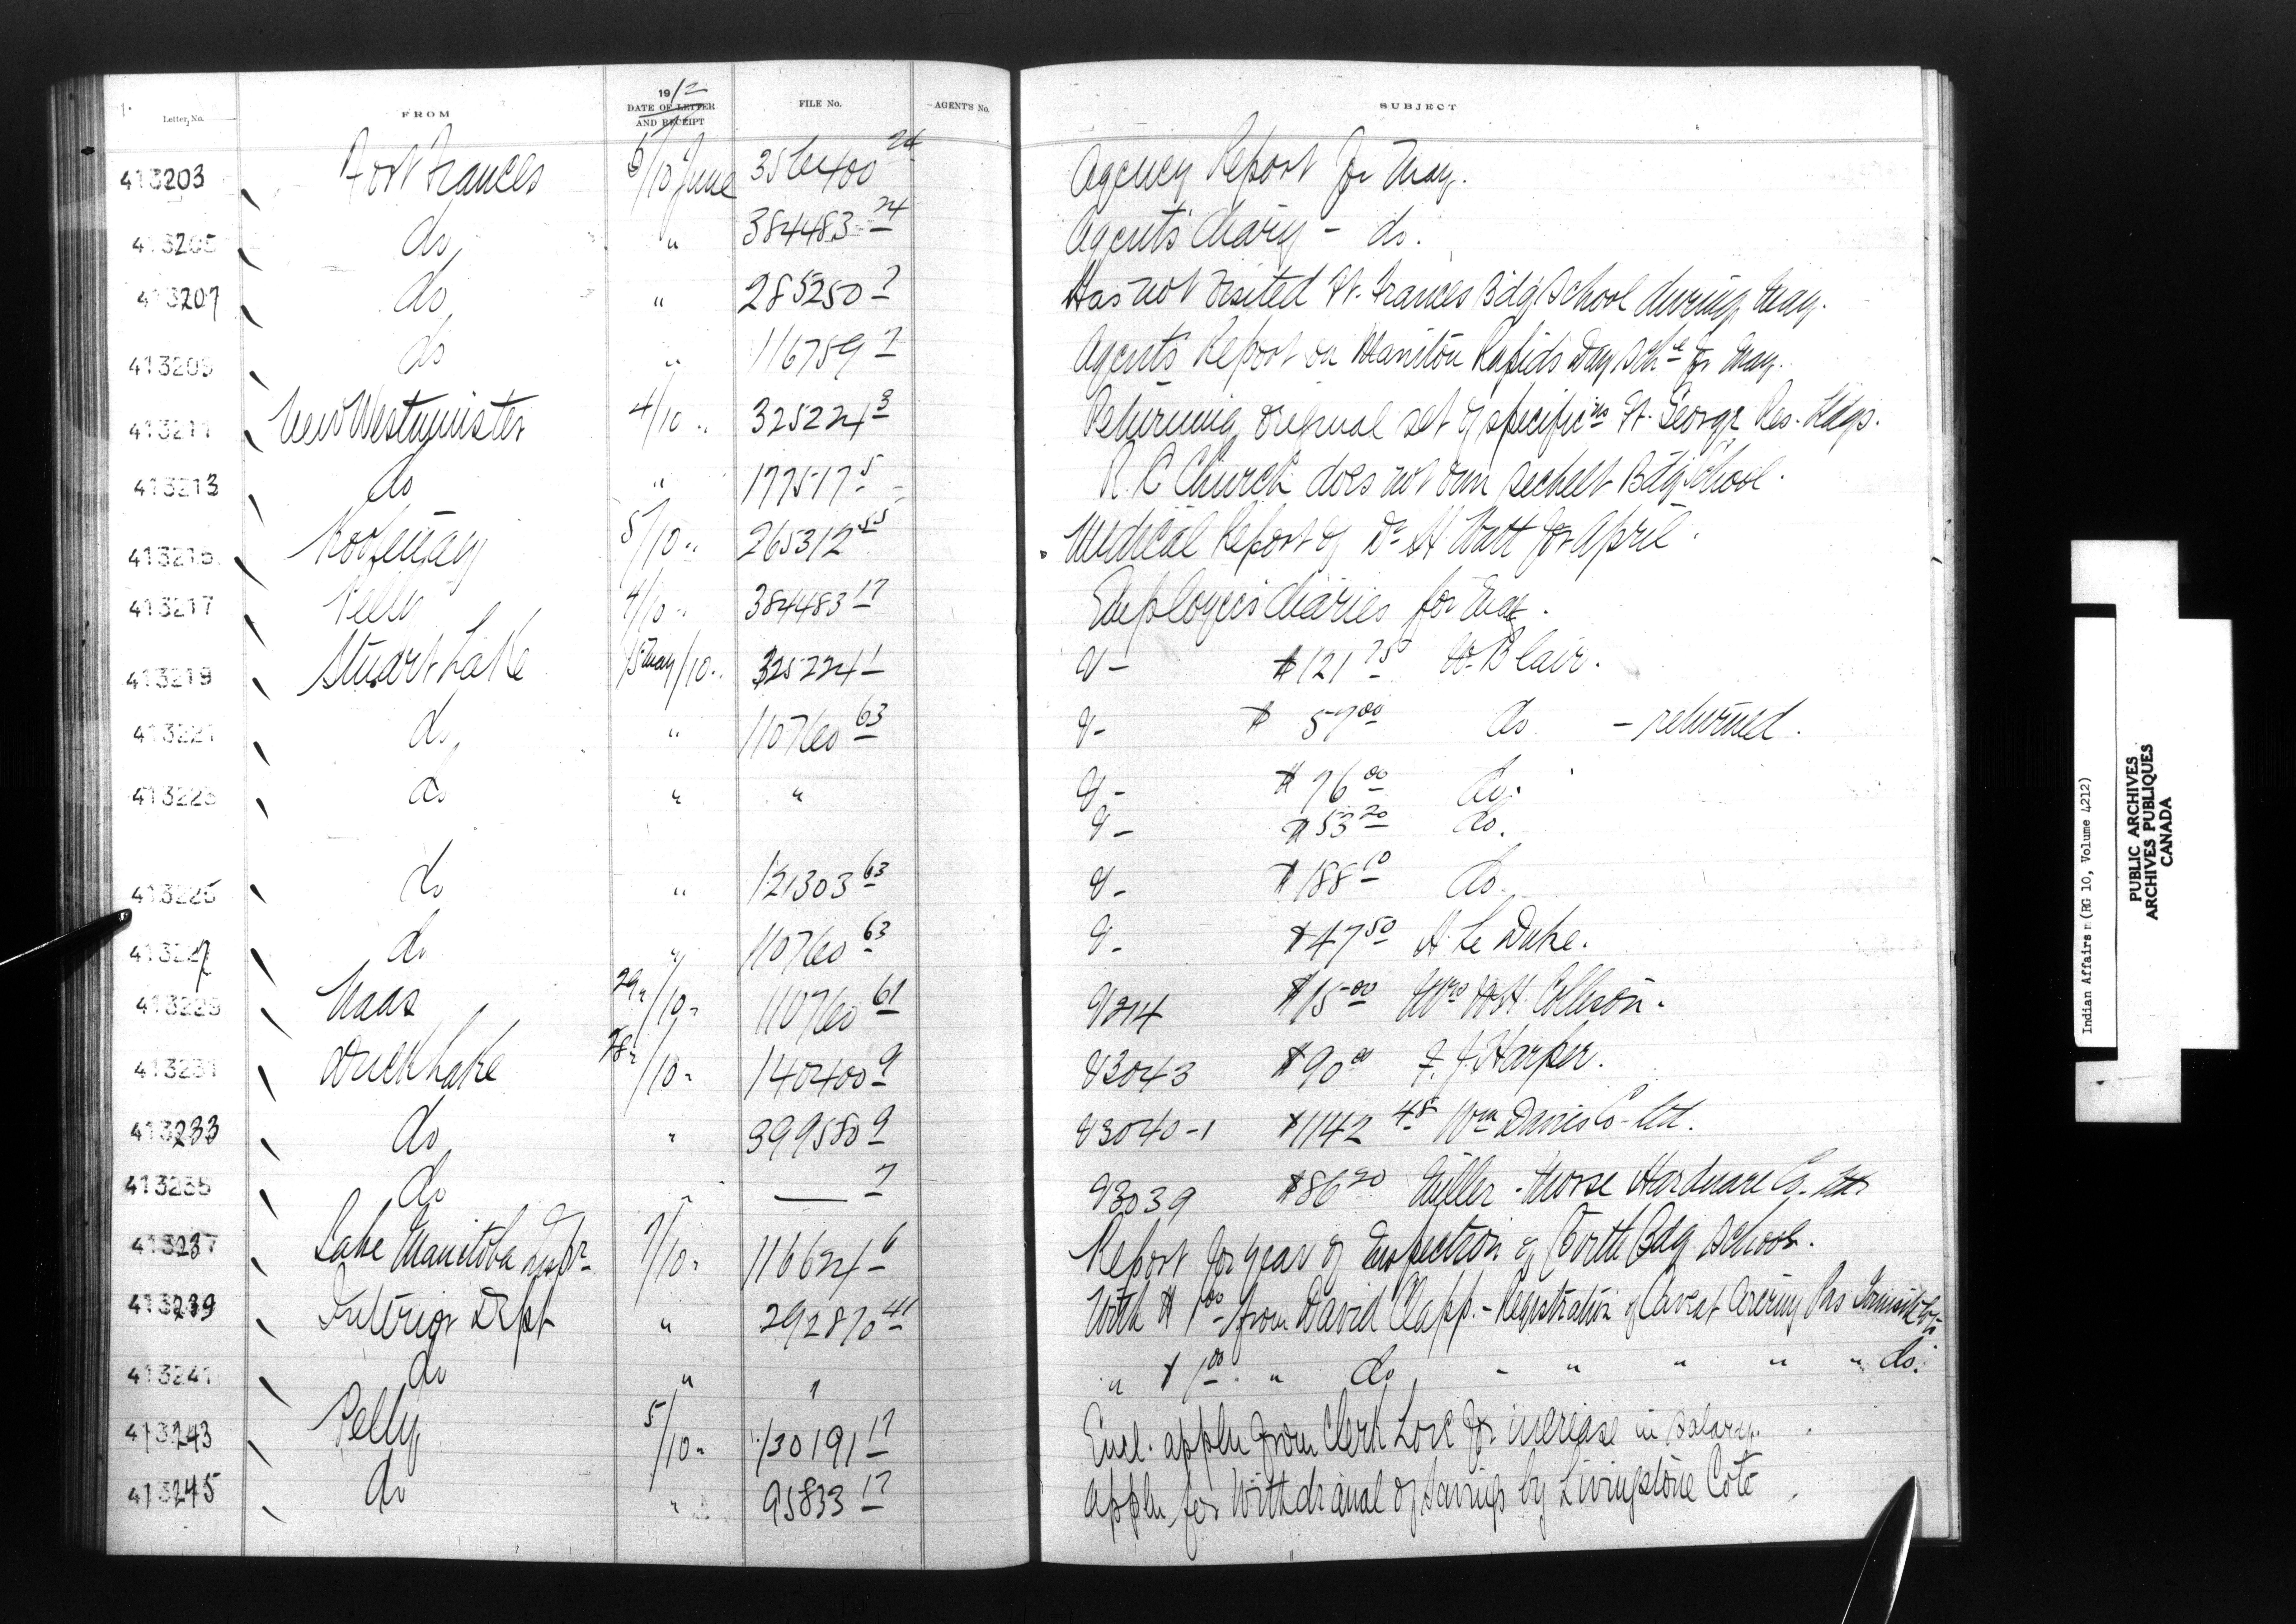 Letter, No. FROM 1912 DATE OF LETTER AND RECEIPT FILE No. AGENT'S No. SUBJECT
413203 Fort Frances 6/10 June 356400 24 Agency Report for May.
413205 do " 384483 24 Agents diary - do.
413207 do " 285250 7 Has not visited Ft. Frances Bdg School during May.
413209 do " 116759 7 Agents Report on Manitou Rapids Day Schl for May.
413211 New Westminster 4/10 " 325224 3 Returning original set of specificns Ft. George Res. Bldgs.
413213 do " 177517 5 R. C Church does not own Sechelt Bdg School.
413215 Kootenay 5/10 " 265312 55 Medical Report of Dr. H Watt for April.
413217 Pelly 4/10 " 384483 17 Employees diaries for May.
413219 Stuart Lake 15 May/10 " 325224 1 V - $121 75 W. Blair.
413221 do " 110760 63 V - $ 57 00 do - returned.
413223 do " " V - $ 76 00 do.
V - $ 53 20 do.
413225 do " 121303 63 V - $188 10 do.
413227 do " 110760 63 V - $47 50 H. Le Duke.
413229 Naas 29 "/10 " 110760 61 V214 $15 00 Mrs W.H. Collison.
413231 Duck Lake 28 "/10 " 140400 9 V3043 $90 00 F. J. Harper.
413233 do " 399580 9 V3040-1 $1142 48 Wm Davies Co. Ltd.
413235 do " — 7 V3039 $86 20 Miller - Morse Hardware Co. Ltd
413237 Lake Manitoba Inspr 7/10 " 116624 6 Report for year of Inspection of Birtle Bdg School.
413239 Interior Dept " 292870 41 With $1 00 from David Clapp. - Registration of Caveat Covering
413241 do " " " $1 00 " do - " " " " do.
413243 Pelly 5/10 " 130191 17 Encl. appln from Clerk for increase in salary.
413245 do " 95833 17 Appln for Withdrawal of Savings by Livingstone Cote
Indian Affairs (RG 10, Volume 4212)
PUBLIC ARCHIVES
ARCHIVES PUBLIQUES
CANADA